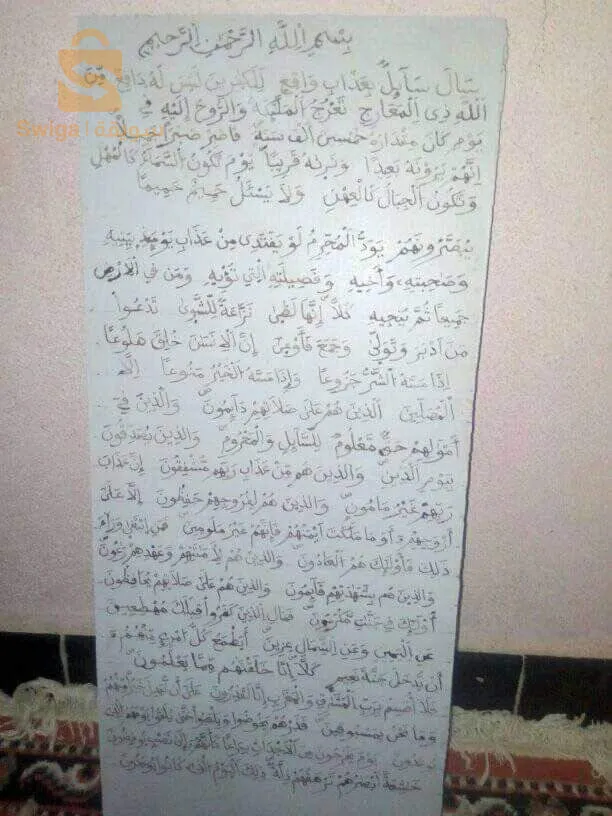 بِسْمِ اِللَّهِ اِلرَّحْمَٰنِ اِلرَّحِيمِ
سَالَ سَآئِلٌ بِعَذَابٍ وَاقِعٍ لِلْكَٰفِرِينَ لَيْسَ لَهُ دَافِعٌ مِّنَ
اَللَّهِ ذِى اِلْمَعَارِجِ تَعْرُجُ اُلْمَلَٰٓئِكَةُ وَالرُّوحُ إِلَيْهِ فِى
يَوْمٍ كَانَ مِقْدَارُهُ خَمْسِينَ أَلْفَ سَنَةٍ فَاصْبِرْ صَبْراً جَمِيلًا
إِنَّهُمْ يَرَوْنَهُ بَعِيدًا وَنَرَىٰهُ قَرِيبًا يَوْمَ تَكُونُ السَّمَآءُ كَالْمُهْلِ
وَتَكُونُ اُلْجِبَالُ كَالْعِهْنِ وَلَا يَسْـَٔلُ حَمِيمٌ حَمِيمًا
يُبَصَّرُونَهُمْ يَوَدُّ اُلْمُجْرِمُ لَوْ يَفْتَدِى مِنْ عَذَابِ يَوْمَئِذٍ بِبَنِيهِ
وَصَٰحِبَتِهِ وَأَخِيهِ وَفَصِيلَتِهِ اِلَّتِى تُـْٔوِيهِ وَمَن فِى اِلْأَرْضِ
جَمِيعاً ثُمَّ يُنجِيهِ كَلَّآ إِنَّهَا لَظَىٰ نَزَّاعَةٌ لِّلشَّوَىٰ تَدْعُواْ
مَنَ اَدْبَرَ وَتَوَلَّىٰ وَجَمَعَ فَأَوْعَىٰٓ إِنَّ اَلِانسَٰنَ خُلِقَ هَلُوعاً
اِذَا مَسَّهُ اُلشَّرُّ جَزُوعًا وَإِذَا مَسَّهُ اُلْخَيْرُ مَنُوعًا اِلَّا
اَلْمُصَلِّينَ اَلَّذِينَ هُمْ عَلَىٰ صَلَاتِهِمْ دَآئِمُونَ وَالَّذِينَ فِىٓ
أَمْوَٰلِهِمْ حَقٌّ مَّعْلُومٌ لِّلسَّآئِلِ وَالْمَحْرُومِ وَالَّذِينَ يُصَدِّقُونَ
بِيَوْمِ اِلدِّينِ وَالَّذِينَ هُم مِّنْ عَذَابِ رَبِّهِم مُّشْفِقُونَ إِنَّ عَذَابَ
رَبِّهِمْ غَيْرُ مَامُونٍ وَالَّذِينَ هُمْ لِفُرُوجِهِمْ حَٰفِظُونَ إِلَّا عَلَىٰٓ
أَزْوَٰجِهِمْ أَوْ مَا مَلَكَتَ اَيْمَٰنُهُمْ فَإِنَّهُمْ غَيْرُ مَلُومِينَ فَمَنِ اِبْتَغَىٰ وَرَآءَ
ذَٰلِكَ فَأُوْلَٰٓئِكَ هُمُ اُلْعَادُونَ وَالَّذِينَ هُمْ لِأَمَٰنَٰتِهِمْ وَعَهْدِهِمْ رَٰعُونَ
وَالَّذِينَ هُم بِشَهَٰدَتِهِمْ قَآئِمُونَ وَالَّذِينَ هُمْ عَلَىٰ صَلَاتِهِمْ يُحَافِظُونَ
أُوْلَٰٓئِكَ فِى جَنَّٰتٍ مُّكْرَمُونَ فَمَالِ اِلَّذِينَ كَفَرُواْ قِبَلَكَ مُهْطِعِينَ
عَنِ اِلْيَمِينِ وَعَنِ اِلشِّمَالِ عِزِينَ أَيَطْمَعُ كُلُّ اُمْرِئٍ مِّنْهُمُ
أَن يُدْخَلَ جَنَّةَ نَعِيمٍ كَلَّآ إِنَّا خَلَقْنَٰهُم مِّمَّا يَعْلَمُونَ
فَلَآ أُقْسِمُ بِرَبِّ اِلْمَشَٰرِقِ وَالْمَغَٰرِبِ إِنَّا لَقَٰدِرُونَ عَلَىٰٓ أَن نُّبَدِّلَ خَيْراً مِّنْهُمْ
وَمَا نَحْنُ بِمَسْبُوقِينَ فَذَرْهُمْ يَخُوضُواْ وَيَلْعَبُواْ حَتَّىٰ يُلَٰقُواْ يَوْمَهُمُ اُلَّذِى
يُوعَدُونَ يَوْمَ يَخْرُجُونَ مِنَ اَلْأَجْدَاثِ سِرَاعاً كَأَنَّهُمُ إِلَىٰ نَصْبٍ يُوفِضُونَ
خَٰشِعَةً اَبْصَٰرُهُمْ تَرْهَقُهُمْ ذِلَّةٌ ذَٰلِكَ اَلْيَوْمُ اُلَّذِى كَانُواْ يُوعَدُونَ
Swiga